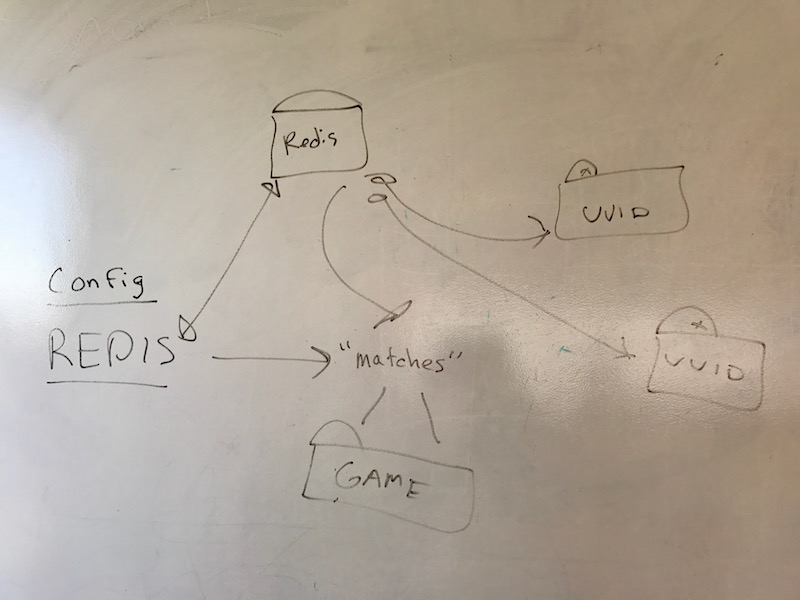 Redis
UUID
Config
REDIS
"matches"
UUID
GAME